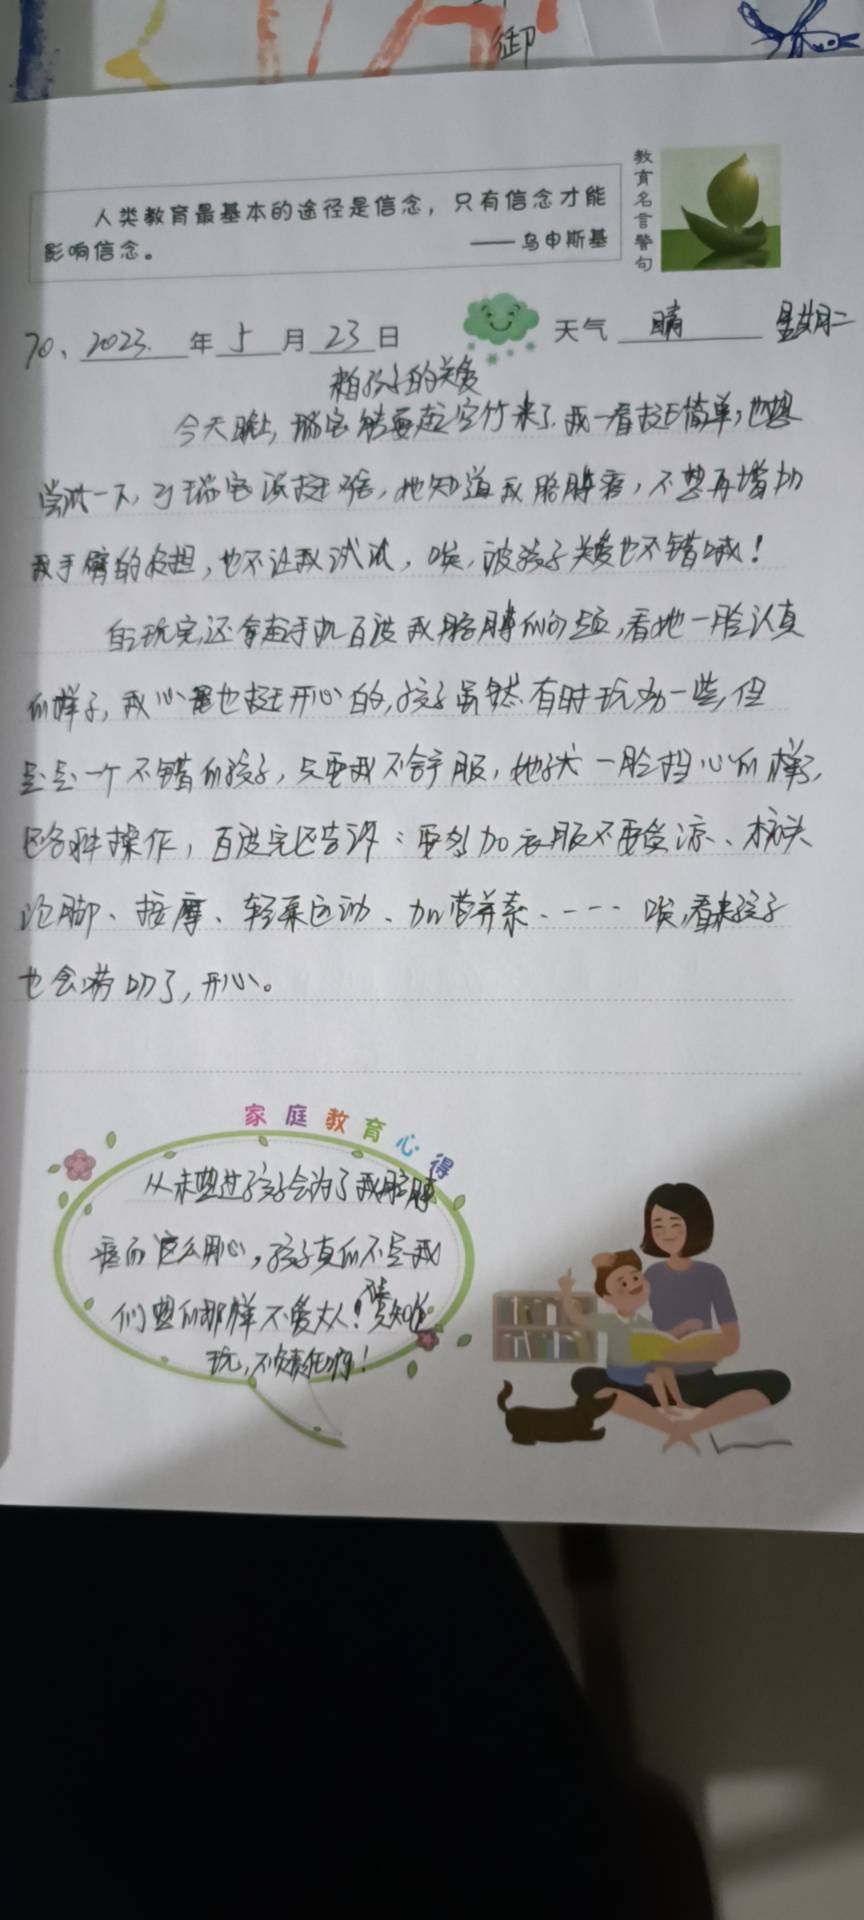 御
教育名言警句
人类教育最基本的途径是信念，只有信念才能
影响信念。 ——乌申斯基
70、2023.年5月23日 天气 晴 星期二
来自孩子的关爱
今天晚上，瑞宝 空竹来了，我一看挺简单，也想
尝试一下，可瑞宝 ，她知道我胳膊疼，不想再增加
我手臂的负担，也不让我试试，唉，被孩子关爱也不错哦！
自己玩完，还拿起手机百度我胳膊的问题，看她一脸认真
的样子，我心里也挺开心的，孩子虽然有时玩劲一些，但
是是一个不错的孩子，只要我不舒服，她 一脸担心的样子，
操作，百度完还告诉：要多加衣服不要受凉、
泡脚、按摩、 运动、加营养素、---- 唉，看来孩子
也会唠叨了，开心。
家庭教育心得
从未想过孩子会为了我胳膊
疼而这么用心，孩子真的不是我
们想的那样不爱大人！ 知道
玩，不负责任啊！